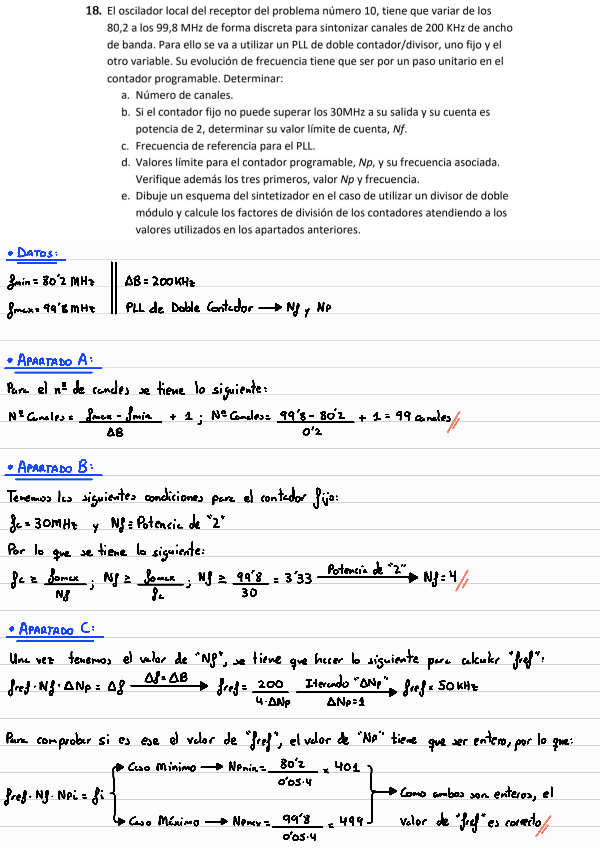 18. El oscilador local del receptor del problema número 10, tiene que variar de los
80,2 a los 99,8 MHz de forma discreta para sintonizar canales de 200 KHz de ancho
de banda. Para ello se va a utilizar un PLL de doble contador/divisor, uno fijo y el
otro variable. Su evolución de frecuencia tiene que ser por un paso unitario en el
contador programable. Determinar:
a. Número de canales.
b. Si el contador fijo no puede superar los 30MHz a su salida y su cuenta es
potencia de 2, determinar su valor límite de cuenta, Nf.
c. Frecuencia de referencia para el PLL.
d. Valores límite para el contador programable, Np, y su frecuencia asociada.
Verifique además los tres primeros, valor Np y frecuencia.
e. Dibuje un esquema del sintetizador en el caso de utilizar un divisor de doble
módulo y calcule los factores de división de los contadores atendiendo a los
valores utilizados en los apartados anteriores.
• DATOS:
fmin = 80'2 MHz ΔB = 200KHz
fmax = 99'8 MHz PLL de Doble Contador → Nf y Np
• APARTADO A:
Para el nº de canales se tiene lo siguiente:
Nº Canales = (fmax - fmin)/ΔB + 1 ; Nº Canales = (99'8 - 80'2)/0'2 + 1 = 99 canales
• APARTADO B:
Tenemos las siguientes condiciones para el contador fijo:
fc = 30MHz y Nf = Potencia de "2"
Por lo que se tiene lo siguiente:
fc ≥ fomax/Nf ; Nf ≥ fomax/fc ; Nf ≥ 99'8/30 = 3'33 Potencia de "2" → Nf = 4
• APARTADO C:
Una vez tenemos el valor de "Nf", se tiene que hacer lo siguiente para calcular "fref":
fref · Nf · ΔNp = Δf Δf = ΔB → fref = 200/(4·ΔNp) Iterando "ΔNp" ΔNp = 1 → fref = 50KHz
Para comprobar si es ese el valor de "fref", el valor de "Np" tiene que ser entero, por lo que:
Caso Mínimo → Npmin = 80'2/(0'05·4) = 401
fref · Nf · Npi = fi → Como ambos son enteros, el
Caso Máximo → Npmax = 99'8/(0'05·4) = 499 valor de "fref" es correcto